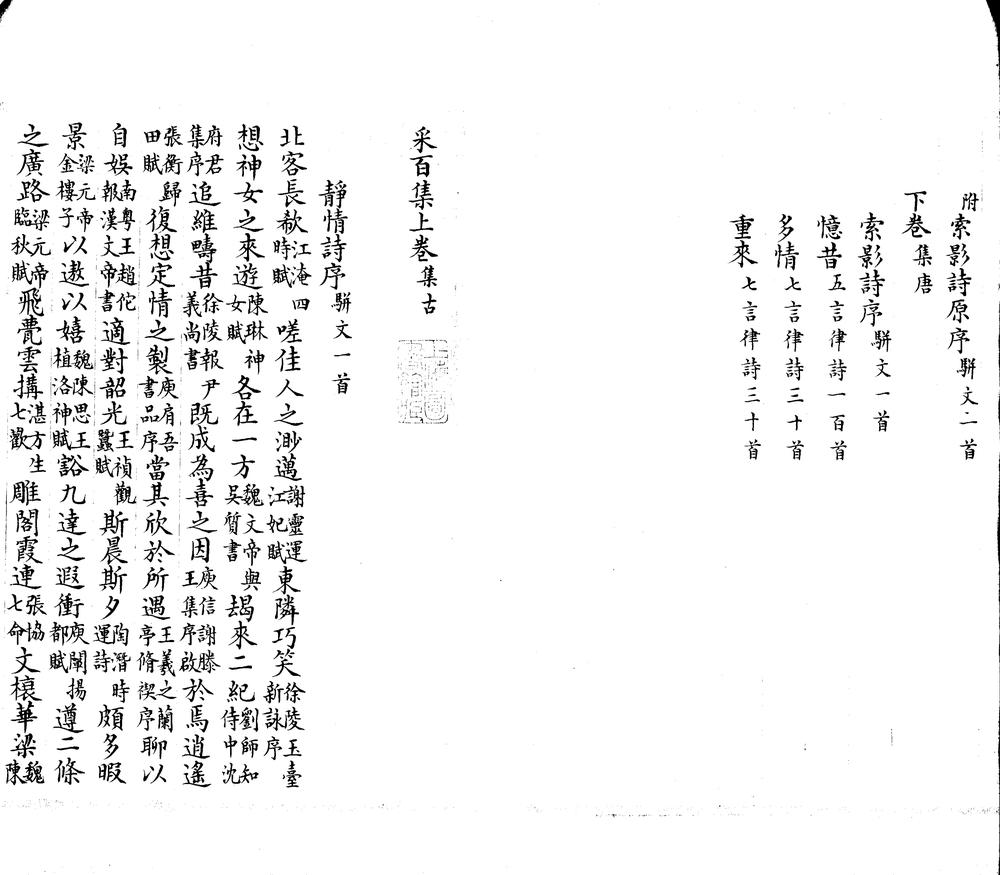 附索影詩原序駢文二首
下卷集唐
索影詩序駢文一首
憶昔五言律詩一百首
多情七言律詩三十首
重來七言律詩三十首
采百集上卷集古
靜情詩序駢文一首
北客長欷江淹四時賦嗟佳人之渺邁謝靈運江妃賦東隣巧笑徐陵玉臺新詠序
想神女之來遊陳琳神女賦各在一方魏文帝與吳質書朅來二紀劉師知侍中沈
府君集序追維疇昔徐陵報尹義尚書既成為喜之因庾信謝滕王集序啟於焉逍遙
張衡歸田賦復想定情之製庾肩吾書品序當其欣於所遇王羲之蘭亭脩禊序聊以
自娛南粵王趙佗報漢文帝書適對韶光王禎觀蠶賦斯晨斯夕陶潛時運詩頗多暇
景梁元帝金樓子以遨以嬉魏陳思王植洛神賦豁九達之遐衝庾闡揚都賦遵二條
之廣路梁元帝臨秋賦飛甍雲搆湛方生七歡雕閣霞連張協七命文榱華梁魏陳